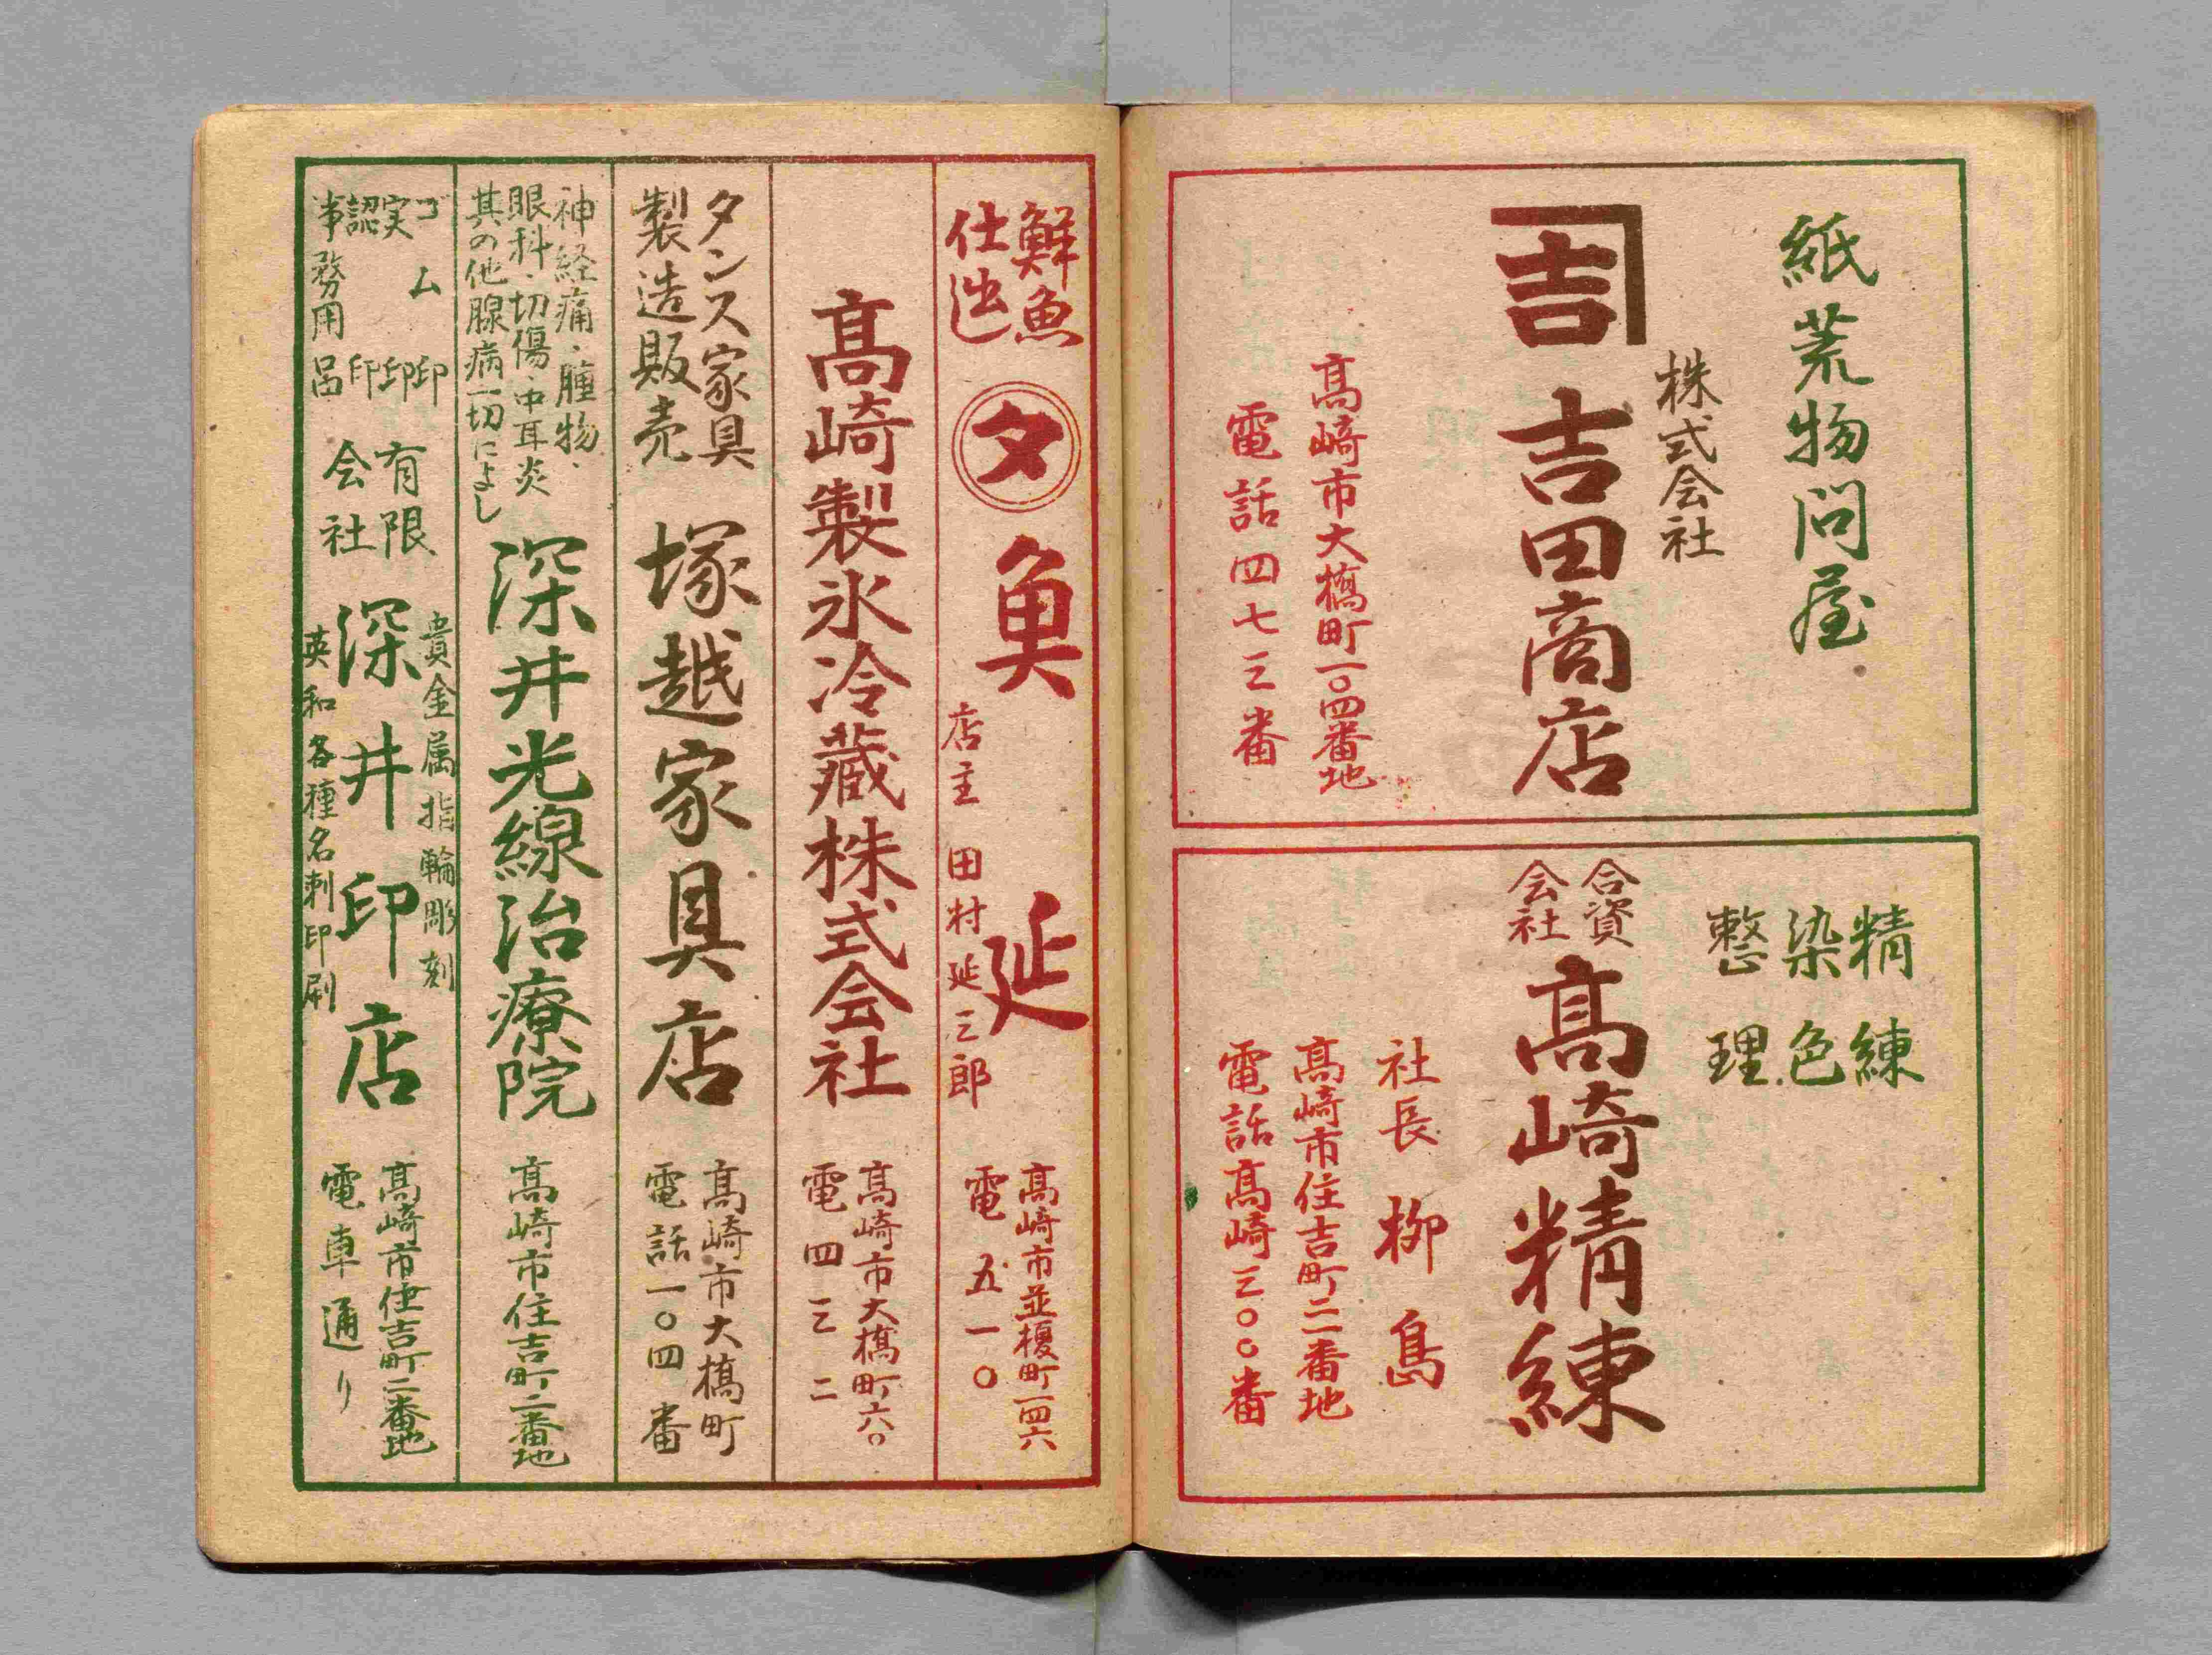 紙荒物問屋
株式会社
吉
吉田商店
高崎市大橋町一〇四番地
電話四七三番
精練
染色
整理
合資
会社
高崎精練
社長 柳島
高崎市住吉町二番地
電話高崎三〇〇番
鮮魚
仕出
タ
魚延
店主 田村延三郎
高崎市並榎町一四六
電 五一〇
高崎製氷冷蔵株式会社
高崎市大橋町六〇
電 四三二
タンス家具
製造販売
塚越家具店
高崎市大橋町
電話一〇四番
神経痛・腫物・
眼科・切傷・中耳炎
其の他腺病一切によし
深井光線治療院
高崎市住吉町二番地
ゴム印
実印
認印
事務用品
有限
会社
貴金属指輪彫刻
深井印店
英和各種名刺印刷
高崎市住吉町二番地
電車通り